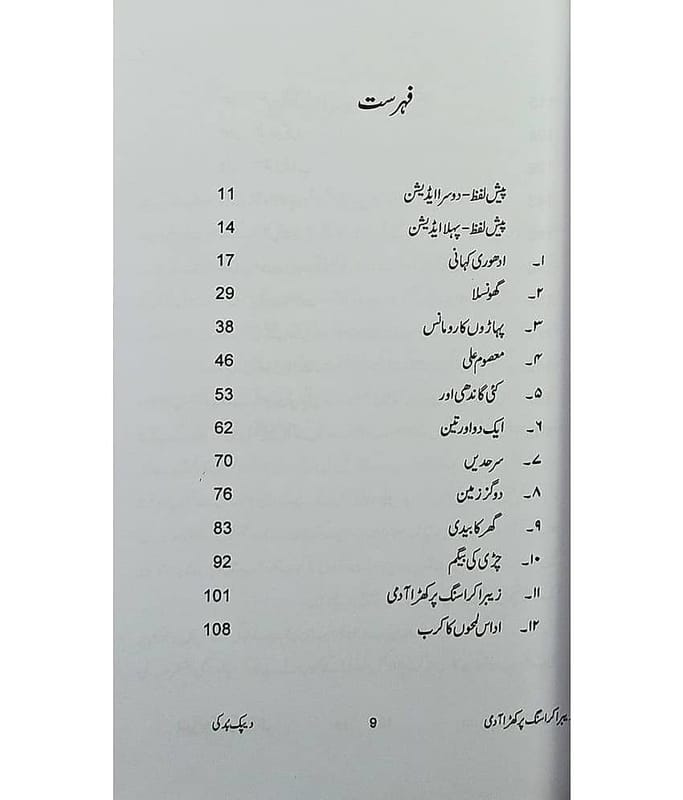 فہرست
پیش لفظ - دوسرا ایڈیشن 11
پیش لفظ - پہلا ایڈیشن 14
۱۔ ادھوری کہانی 17
۲۔ گھونسلا 29
۳۔ پہاڑوں کا رومانس 38
۴۔ معصوم علی 46
۵۔ کئی گاندھی اور 53
۶۔ ایک دو اور تین 62
۷۔ سرحدیں 70
۸۔ دو گز زمین 76
۹۔ گھر کا بیدی 83
۱۰۔ چڑی کی بیگم 92
۱۱۔ زیبرا کراسنگ پر کھڑا آدمی 101
۱۲۔ اداس لمحوں کا کرب 108
یبرا کراسنگ پر کھڑا آدمی 9 دیپک بُدکی